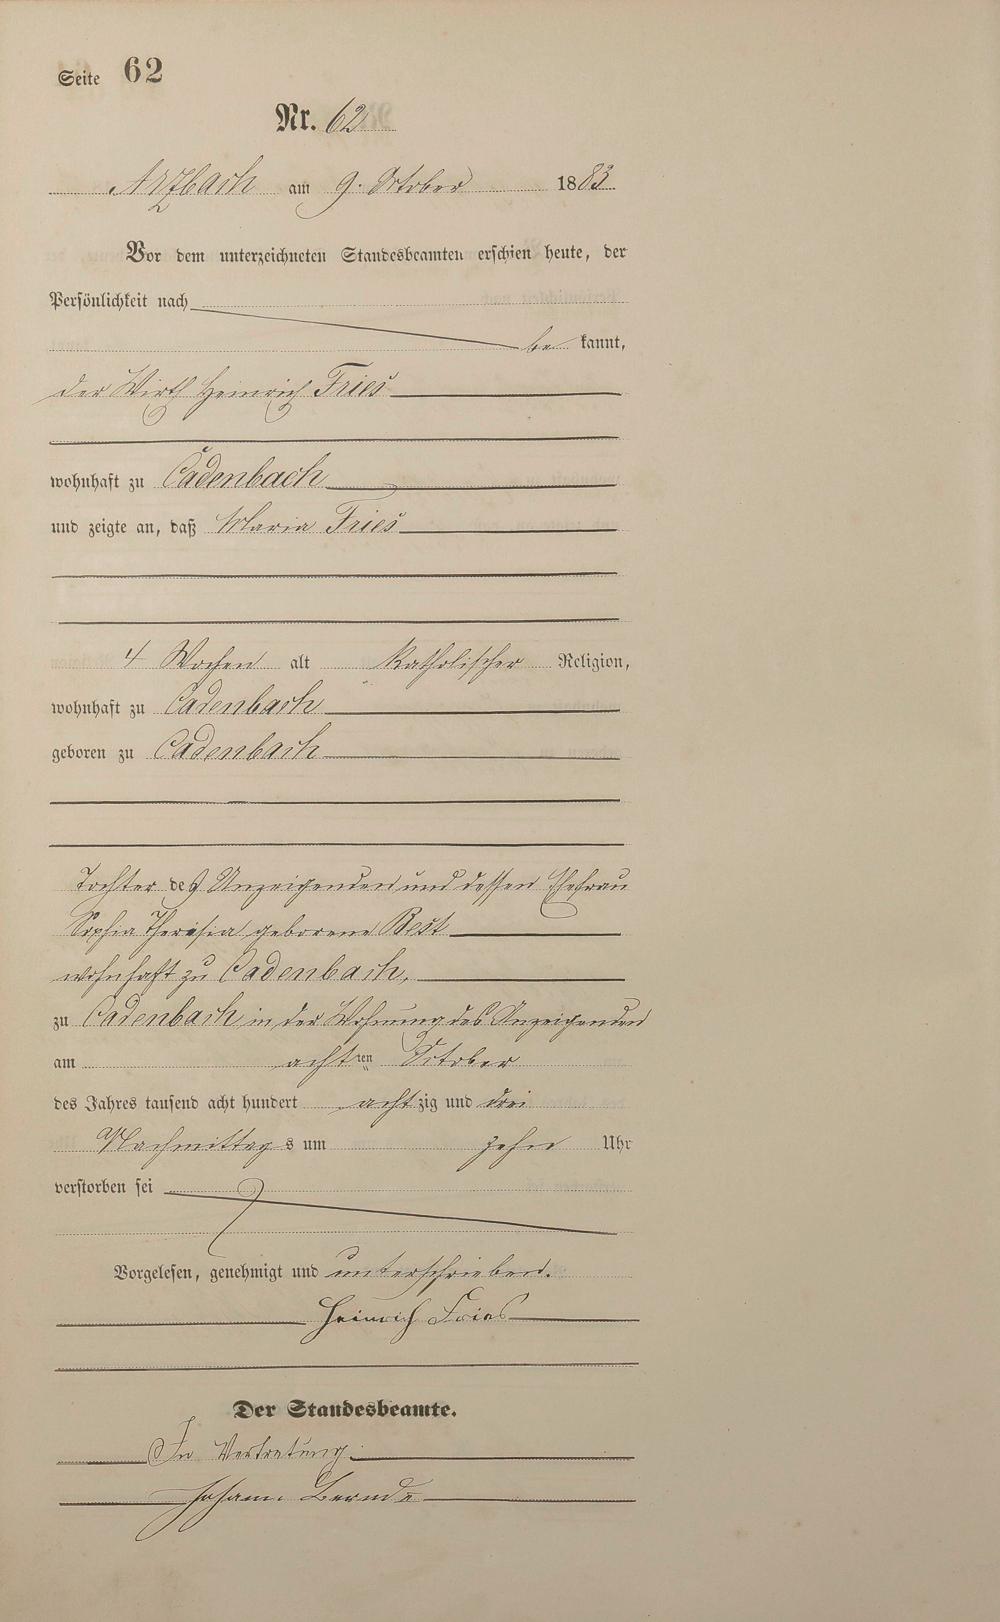 Seite 62
Nr. 62
Arzbach am 9. October 1883
Vor dem unterzeichneten Standesbeamten erschien heute, der
Persönlichkeit nach
be kannt,
der Wirth Heinrich Fries
wohnhaft zu Cadenbach
und zeigte an, daß Maria Fries
4 Wochen alt katholischer Religion,
wohnhaft zu Cadenbach
geboren zu Cadenbach
Tochter des Anzeigenden und dessen Ehefrau
Sophia Theresia geborene Best
wohnhaft zu Cadenbach,
zu Cadenbach in der Wohnung des Anzeigenden
am achten October
des Jahres tausend acht hundert achtzig und drei
Nachmittags um zehn Uhr
verstorben sei
Vorgelesen, genehmigt und unterschrieben.
Heinrich Fries
Der Standesbeamte.
In Vertretung.
Johann